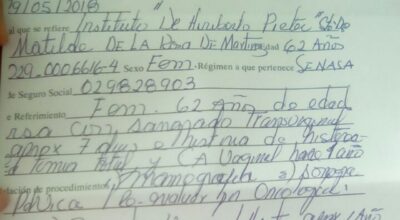 29/05/2018
al que se refiere Instituto "De Humberto Pieter"
Matilde DE LA Rosa DE Martinez edad 62 Años
229-0006616-4 Sexo Fem Régimen a que pertenece SENASA
de Seguro Social 029828903
e Referimiento Fem. 62 Año de edad
con sangrado Transvaginal
aprox 7 dias e historia de histerec
tomia total y CA Vaginal hace 1 año
lación de procedimientos 1) Mamografia 2) sonogra
Pelvica Re-evaluar por Oncologia.